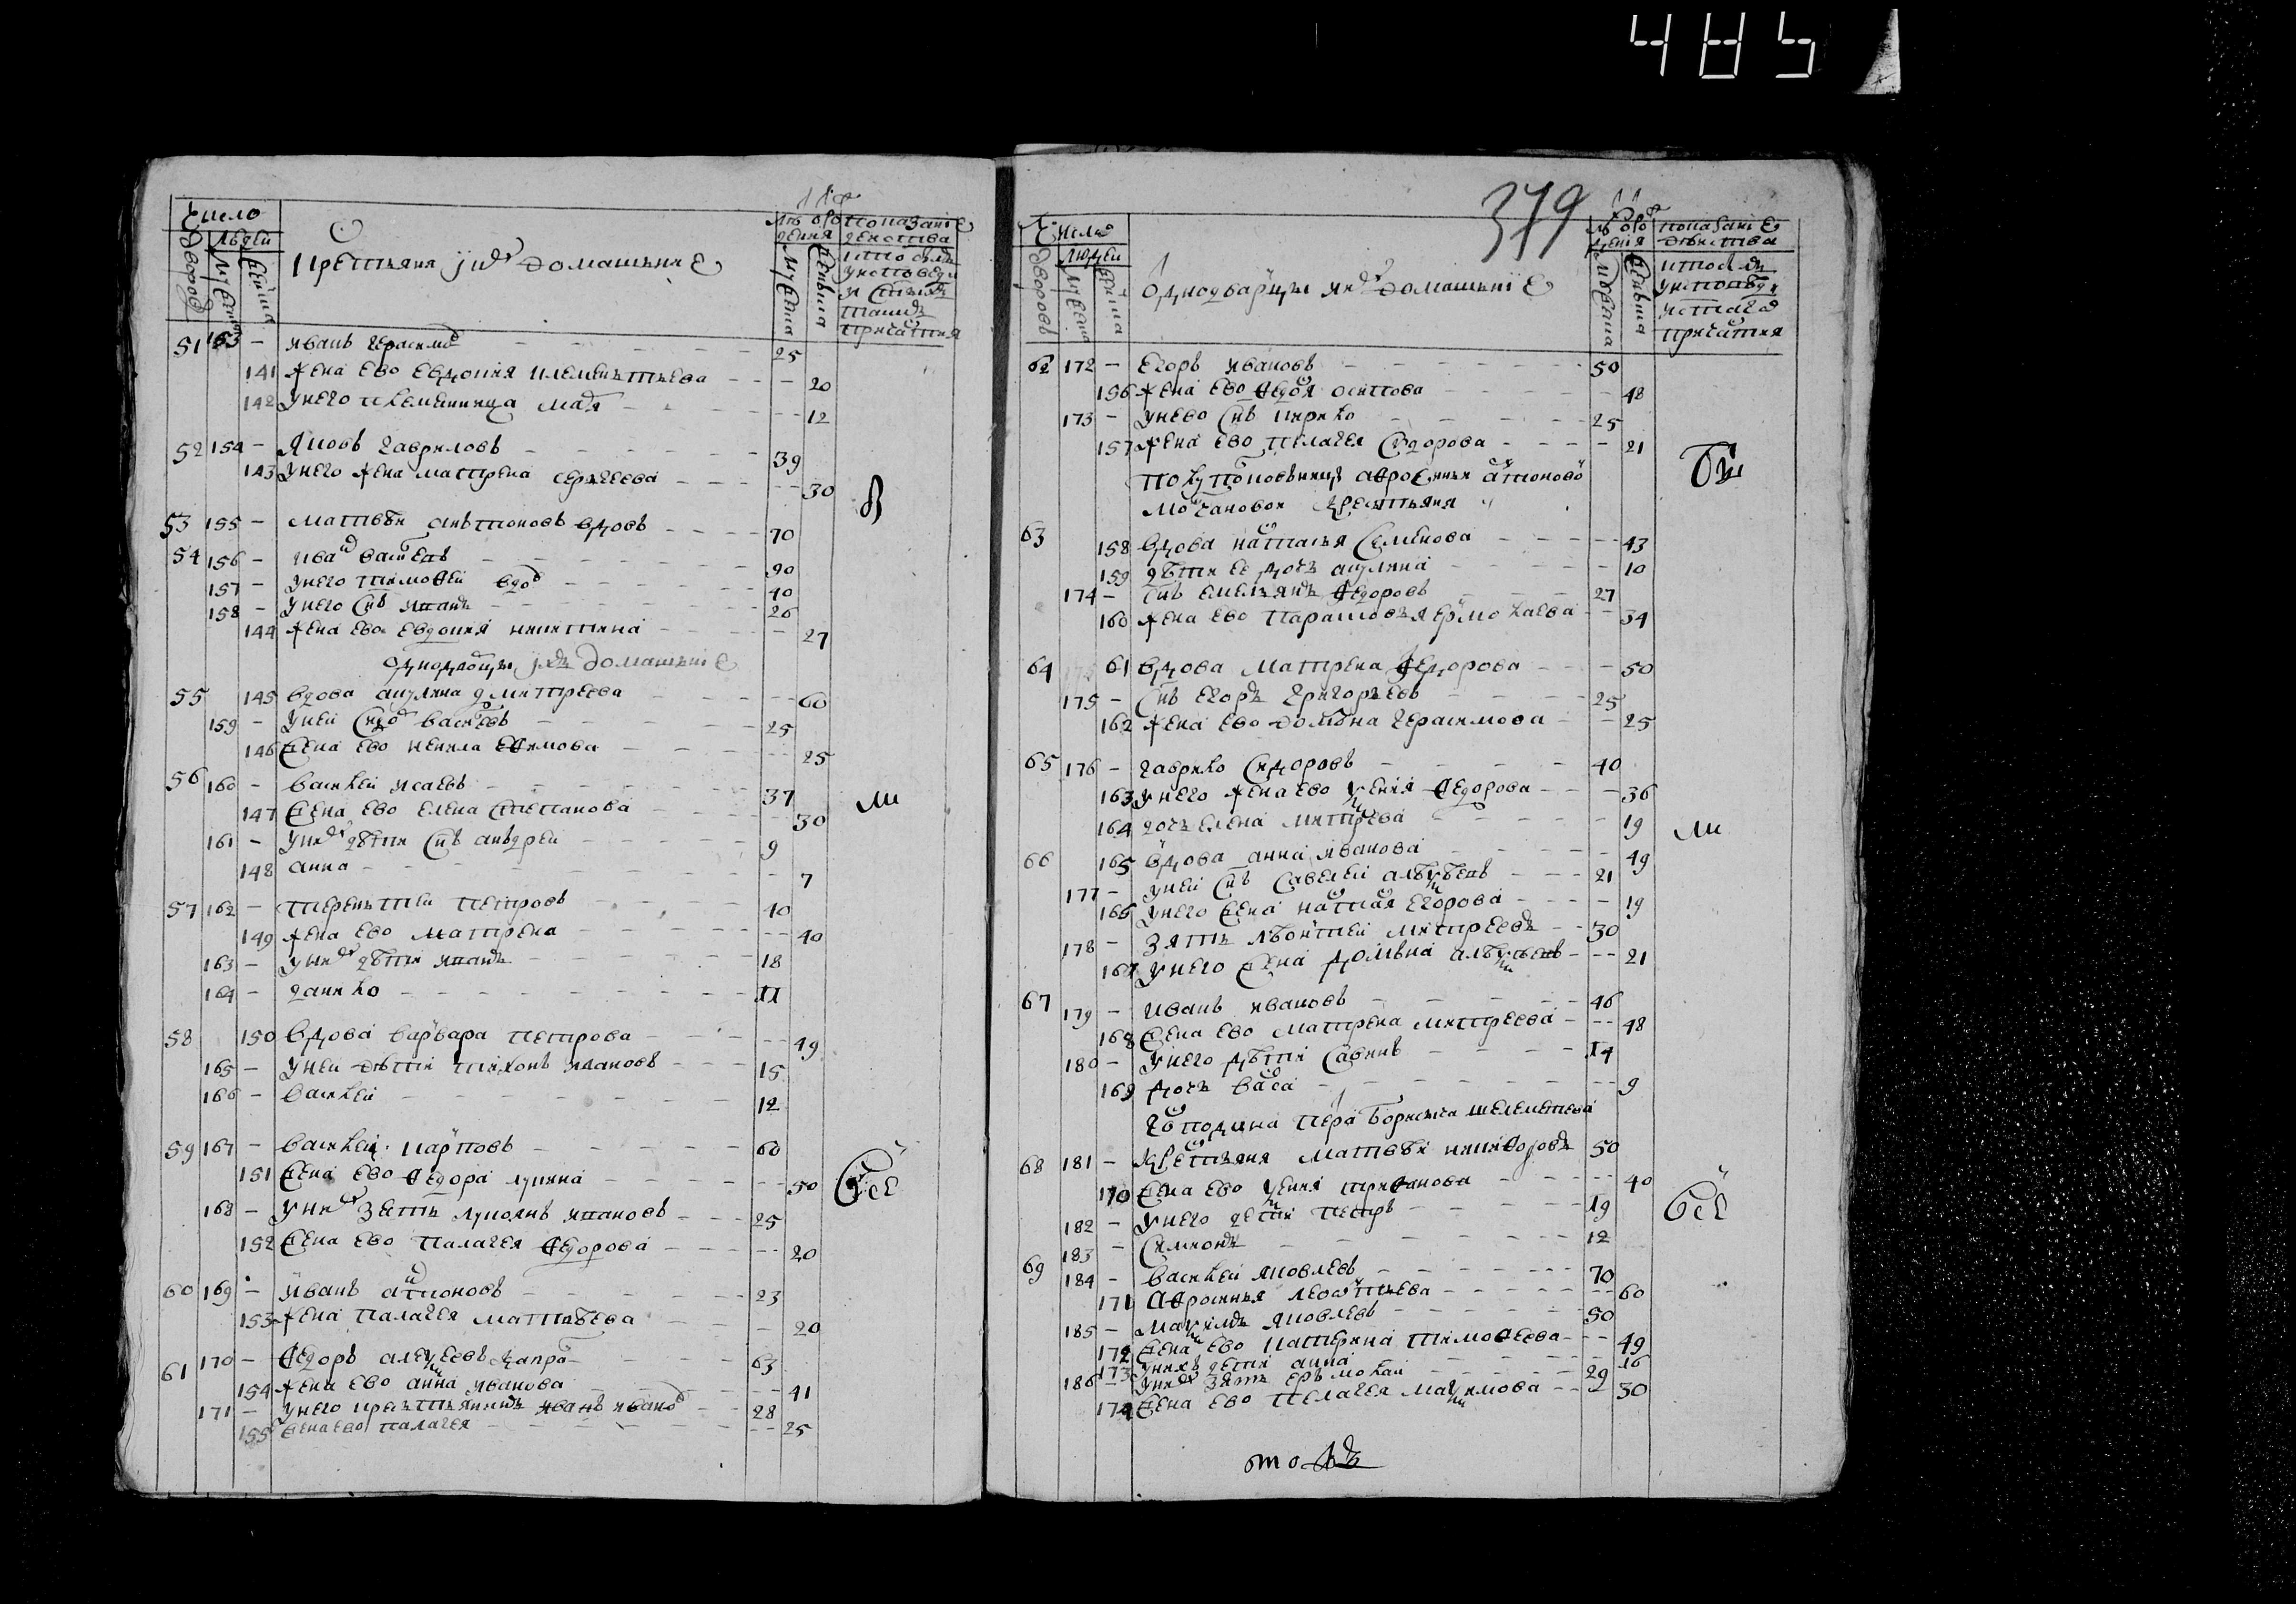 485
Число
людей
дворов
крестьяня и их домашние
51 153 - иванъ герасимо 25
141 жена ево евдокия клементьева 20
142 у него племенница мая 12
52 154 - яковъ гавриловъ 39
143 у него жена матрена сергеева 30
53 155 - матвѣи антоновъ вдовъ 70
54 156 - 90
157 - у него тимофеи вдо 40
158 - у него снъ иванъ 26
144 жена ево евдокия никитина 27
однодворцы и их домашние
55 145 вдова акулина дмитреева 60
159 - у неи 25
146 жена ево ненила ефимова 25
56 160 - василеи исаевъ 37
147 жена ево елена степанова 30
161 - у них дѣти снъ анъдреи 9
148 анна 7
57 162 - терентеи петровъ 40
149 жена ево матрена 40
163 - у них дѣти иванъ 18
164 - данило 11
58 150 вдова варвара петрова 49
165 - у неи дѣти тихонъ ивановъ 15
166 - василеи 12
59 167 - василеи карповъ 60
151 жена ево федора лукина 50
168 - у них зять лукоянъ ивановъ 25
152 жена ево палагея федорова 20
60 169 - иванъ 23
153 жена палагея матвѣева 20
61 170 - федоръ алексеевъ 63
154 жена ево анна иванова 41
171 - у него крестьянинъ иванъ ивано 28
155 жена ево палагея 25
379
Число
людей
дворовъ
однодварцы и их домашние
62 172 - егоръ ивановъ 50
156 жена ево федося осипова 48
173 - у нево снъ кирило 25
157 жена ево пелагея сидорова 21
крестьяня
63 158 вдова наталья семенова 43
159 дѣти ее дочь акулина 10
174 - снъ емельянъ федоровъ 27
160 жена ево парасковья ермолаева 34
64 61 вдова матрена федорова 50
175 - снъ егоръ григорьевъ 25
162 жена ево домна герасимова 25
65 176 - гаврило сидоровъ 40
163 у него жена ево ксения федорова 36
164 дочь елена митрева 19
66 165 вдова анна иванова 49
177 - у неи снъ савелеи 21
166 у него жена настася егорова 19
178 - зять лѣонтеи митреевъ 30
167 у него жена домна 21
67 179 - иванъ ивановъ 46
168 жена ево матрена митреева 48
180 - у него дѣти савинъ 14
169 дочь васа 9
господина петра борисыча шелеметева
68 181 - крестьяня матвѣи никифоровъ 50
170 жена ево ксения трифанова 40
182 - у него дети петръ 19
183 - симионъ 12
69 184 - василеи яковлевъ 70
171 афросинья леонтьева 60
185 - максимъ яковлевъ 50
172 жена ево катерина тимофеева 49
173 у нихъ дети анна 16
186 - у них зять ермолаи 29
174 жена ево пелагея максимова 30